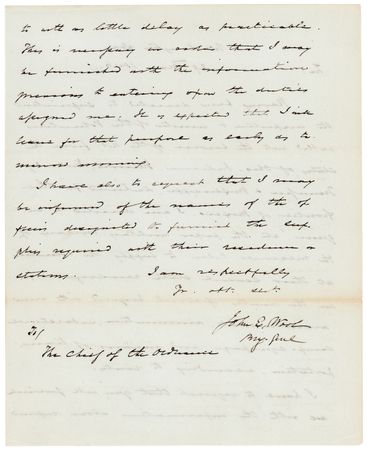 to with as little delay as practicable.
This is necessary in order that I may
be furnished with the information
previous to entering upon the duties
assigned me. It is expected that I
leave for that purpose as early as to
morrow morning.
I have also to request that I may
be informed of the names of the of
ficers designated to furnish the sup
plies required with their residence or
stations. I am respectfully
Yr. obt. sert.
John E. Wool
Brg. Genl
To/
The Chief of the Ordnance